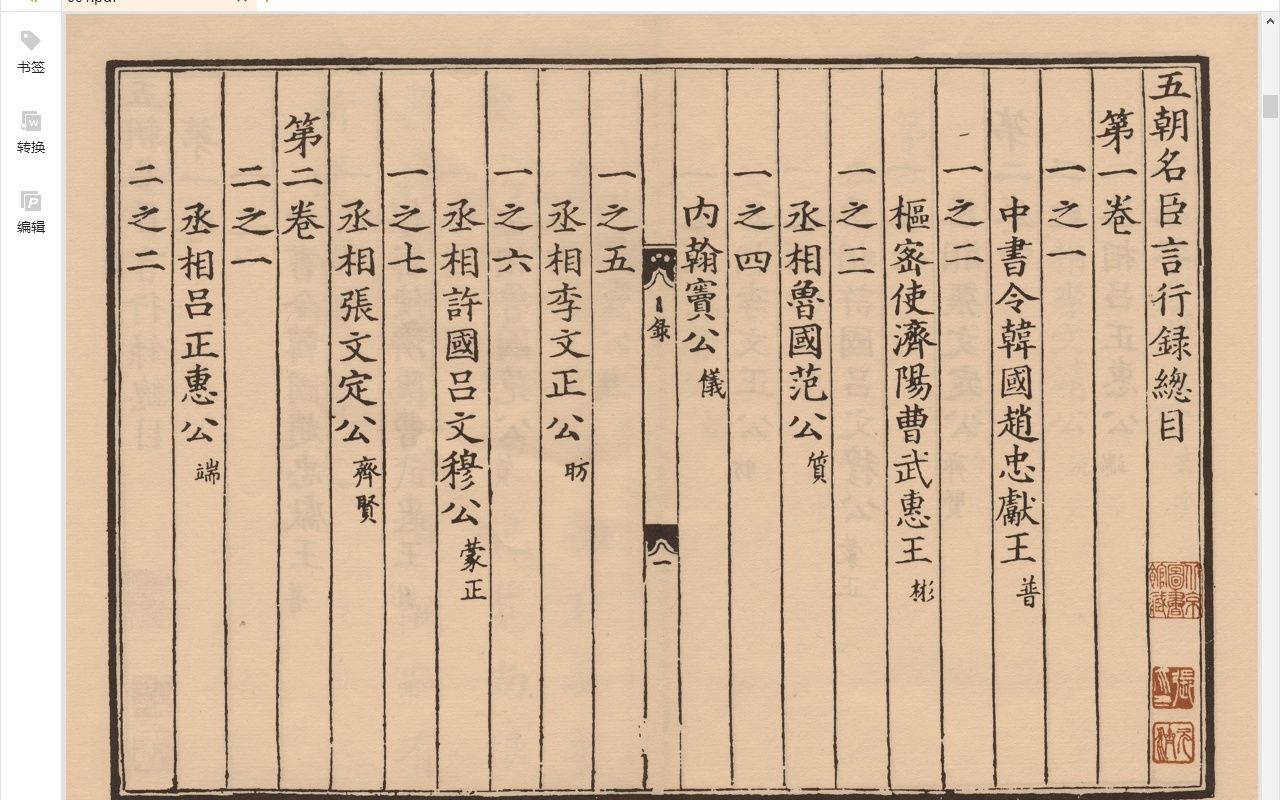 书签
转换
编辑
五朝名臣言行録總目
第一卷
一之一
中書令韓國趙忠獻王普
一之二
樞宻使濟陽曹武惠王彬
一之三
丞相魯國范公質
一之四
内翰竇公儀
録
一
一之五
丞相李文正公昉
一之六
丞相許國吕文穆公蒙正
一之七
丞相張文定公齊賢
第二卷
二之一
丞相吕正惠公端
二之二